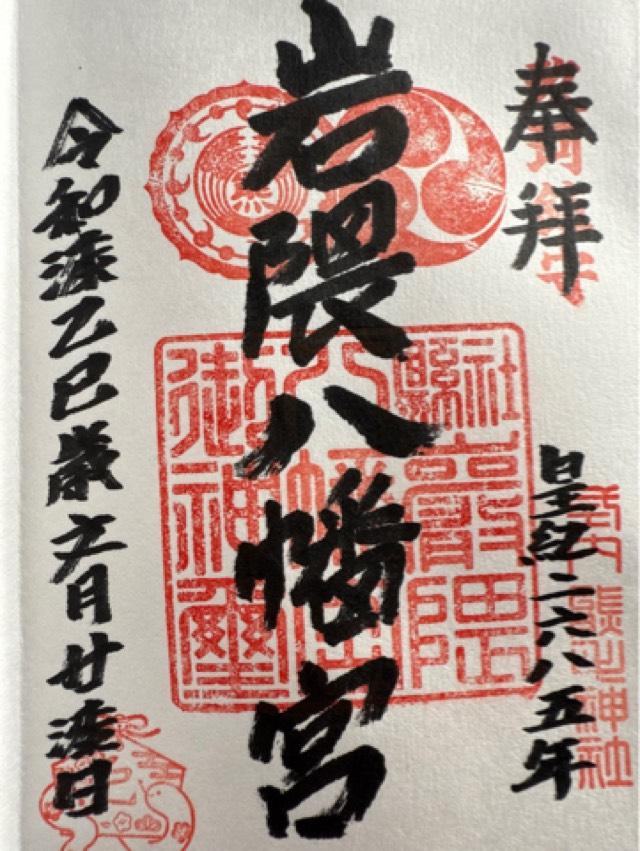 奉拝
皇紀二六八五年
岩隈八幡宮
令和漆乙巳歳文月廿漆日
縣社
隈
八幡宮
御神璽
神社